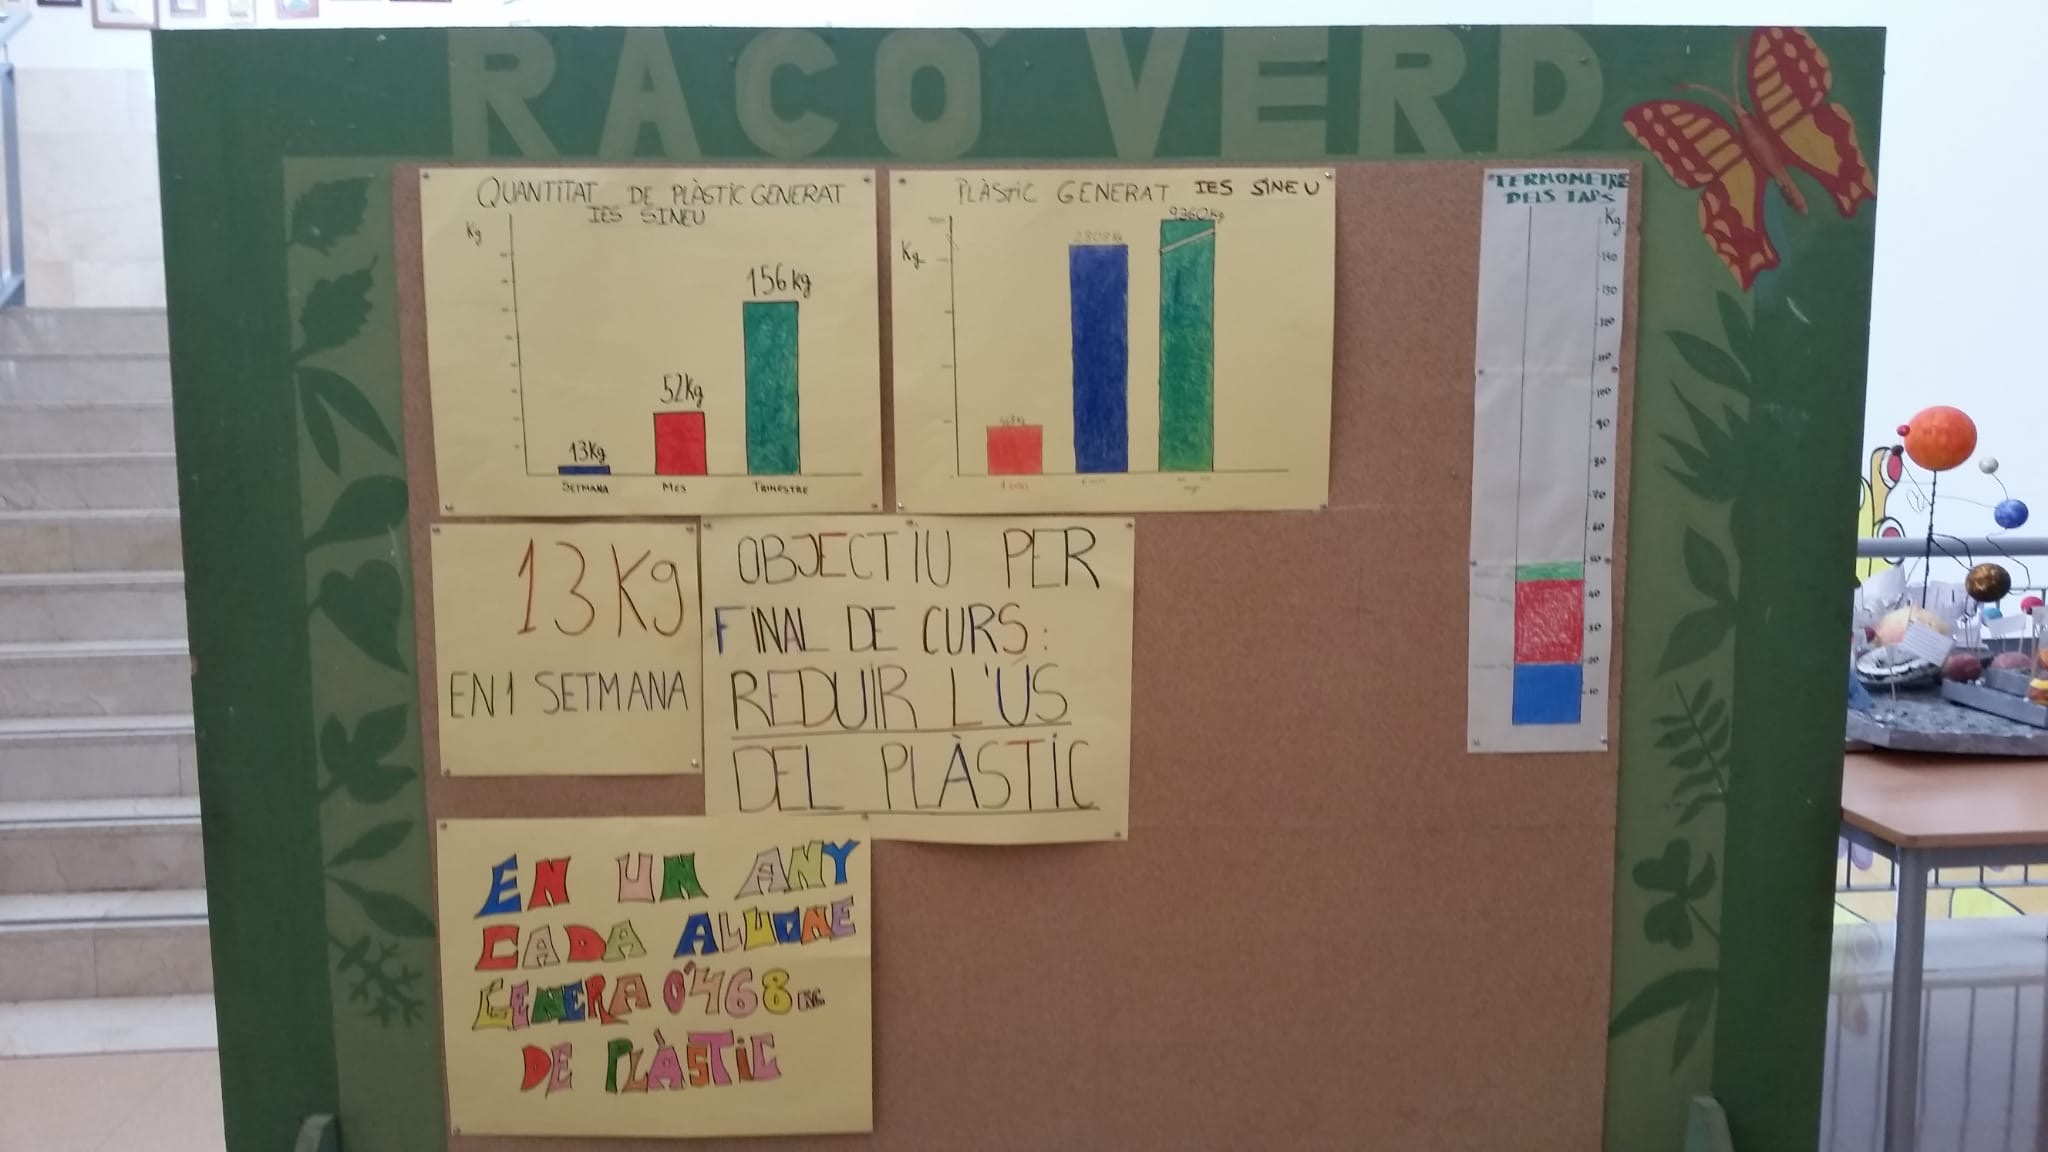 RACÓ VERD
QUANTITAT DE PLÀSTIC GENERAT
IES SINEU
Kg
13Kg
52Kg
156kg
SETMANA MES TRIMESTRE
PLÀSTIC GENERAT IES SINEU
Kg
2808Kg
9360Kg
TERMOMETRE
DELS TAPS
Kg
140
130
120
110
100
90
80
70
60
50
40
30
20
10
13 Kg
EN 1 SETMANA
OBJECTIU PER
FINAL DE CURS:
REDUIR L'ÚS
DEL PLÀSTIC
EN UN ANY
CADA ALUMNE
GENERA 0'468 KG
DE PLÀSTIC